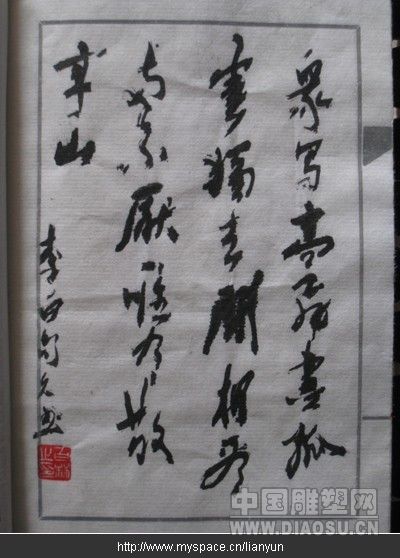 衆鸟高飛盡孤
雲獨去閑相看
两不厭唯有敬
亭山
李白句
中国雕塑网
WWW.DIAOSU.CN
http://www.myspace.cn/lianyun